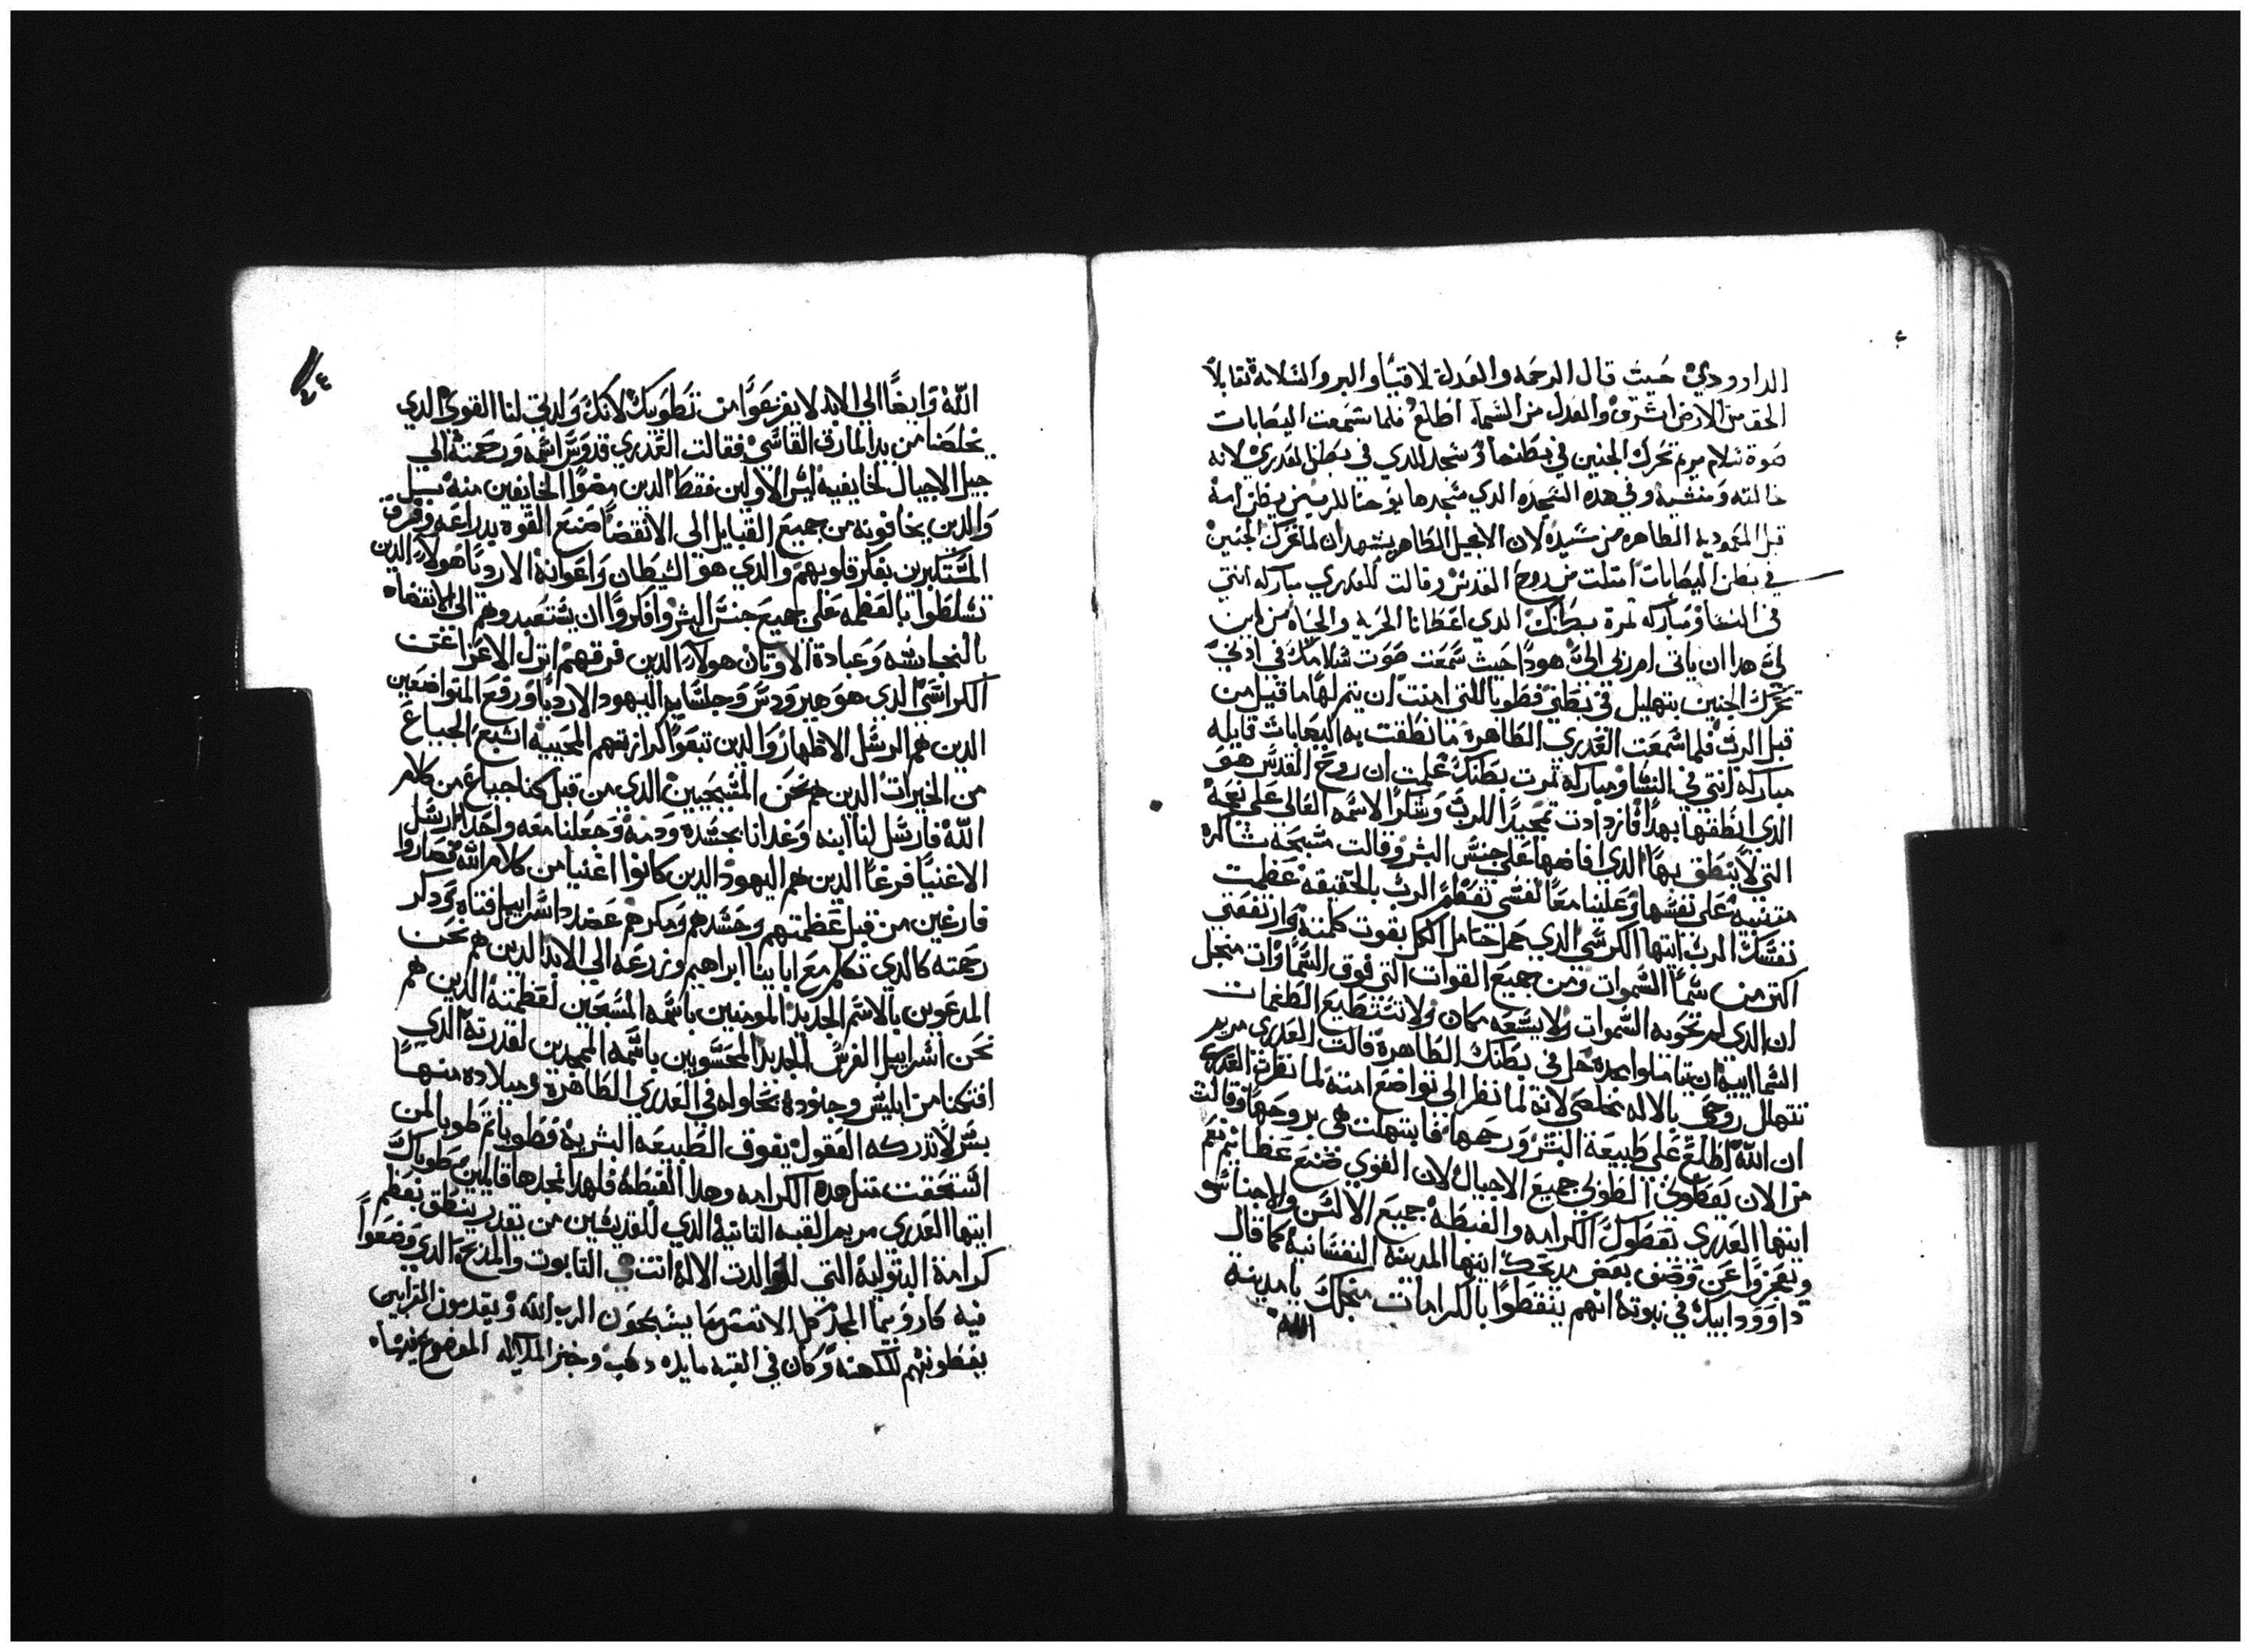 الداوودي حيث قال الرحمه والعدل لاقيا والبر والسلامه تقابلا
الحق من الارض اشرق والعدل من السما اطلع فلما سمعت اليصابات
صوة سلام مريم تحرك الجنين في بطنها وسجد للدي في بطن العدري لانه
خالقه ومنشيه وفي هده السجده الدي سجدها يوحنا للرب من بطن امه
قبل المعموديه الطاهره من سيده لان الانجيل الطاهر يشهد ان لما تحرك الجنين
في بطن اليصابات امتلت من روح القدس وقالت للعدري مباركه انتي
في النسا ومباركه تمرة بطنك الدي اعطانا الحريه والحياه من اين
لي هدا ان ياتي ام ربي الي هودا حيث سمعت صوت سلامك في ادني
تحرك الجنين بتهليل في بطني فطوبا للتي امنت ان يتم لها ما قيل من
قبل الرب فلما سمعت العدري الطاهرة ما نطقت به اليصابات قايله
مباركه انتي في النسا ومباركه تمرت بطنك علمت ان روح القدس هو
الدي انطقها بهدا فازدادت تمجيدا للرب وشكرا لاسمه العالي علي نعمة
التي لا ينطق بها الدي افاضها علي جنس البشر وقالت مسبحه شاكره
متنبيه علي نفسها وعلينا معا نفسي تعظم الرب بالحقيقه عظمت
نفسك الرب ايتها الكرسي الدي حمل حامل الكل بقوت كلمته وارتفعتي
اكتر من سما السموات ومن جميع القوات التي فوق السماوات من اجل
ان الدي لم تحويه السموات ولا يسعه مكان ولا تستطيع الطغمات
السماييه ان يتاملوا مجده حل في بطنك الطاهرة قالت العدري مريم
تتهلل روحي بالاله مخلصي لانه لما نظر الي تواضع امته لما نظرت العدري
ان الله اطلع علي طبيعة البشر ورحمها فابتهلت هي بروحها وقالت
من الان يعطوني الطوبي جميع الاجيال لان القوي صنع عظايم نعم
ايتها العدري يعطوك الكرامه والغبطه جميع الالسن والاجناس
ويعجزوا عن وصف بعض مديحك ايتها المدينه النفسانيه كما قال
داوود ابيك في نبوته انهم ينطقوا بالكرامات من اجلك يا مدينة
الله
٢٤
الله وايضا الي الابد لا يفرغوا من تطويبك لانك ولدتي لنا القوي الدي
خلصنا من يد المارق القاسي فقالت العدري قدوس اسمه ورحمته الي
جيل الاجيال لخايفيه ليس الاولين فقط الدين مضوا الخايفين منه بل
والدين يخافونه من جميع القبايل الي الانقضا صنع القوه بدراعه وفرق
المستكبرين بفكر قلوبهم والدي هو الشيطان واعوانه الارديا هولاء الدين
تسلطوا بالعظمه علي جميع جنس البشر وافكروا ان يستعبدوهم الي الانقضاء
بالنجاسه وعبادة الاوتان هولاء الدين فرقهم انزل الاعزا عن
الكراسي الدي هو هيرودس وجلسايه اليهود الارديا ورفع المتواضعين
الدين هم الرسل الاطهار والدين تبعوا كرازتهم المحييه اشبع الجياع
من الخيرات الدين هم نحن المسيحيين الدي من قبل كنا جياع من كلام
الله فارسل لنا ابنه وغدانا بجسده ودمه وجعلنا معه واحدا ارسل
الاغنيا فرغا الدين هم اليهود الدين كانوا اغنيا من كلام الله فصاروا
فارغين من قبل عظمتهم وحسدهم ومكرهم عضد اسراييل فتاه ودكر
رحمته كالدي تكلم مع ابايينا ابراهيم وزرعه الي الابد الدين هم نحن
المدعوين بالاسم الجديد المومنين باسمه المسبحين لعظمته الدين هم
نحن اسراييل الغرس الجديد المحسوبين باسمه الممجدين لقدرته الدي
افتكنا من ابليس وجنوده بحلوله في العدري الطاهرة وميلاده منها
بسر لا تدركه العقول يفوق الطبيعه البشريه فطوبا تم طوبا لمن
استحقت متل هده الكرامه وهدا الغبطه فلهدا نمجدها قايلين طوباك
ايتها العدري مريم القبه التانيه الدي للقديسين من يقدر ينطق بعظم
كرامة البتوليه التي لوالدت الاله انت هي التابوت والمدبح الدي وضعوا
فيه كاروبيما المجد كل الانفس بها يسبحون الرب الله ويقدمون القرابين
يعطونهم للكهنه وكان في القبه مايده دهب وخبز الملايكه الموضوع